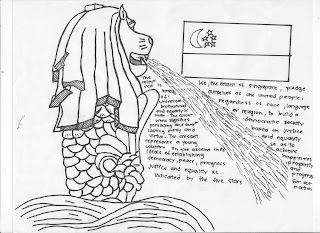 The
red is
universal
brotherhood
and equality of
man. The
white signifies
pervading
lasting purity and
virtue. The crescent
represents a young
country on the ascent in its
ideals of establishing
democracy, peace, progress
justice and equality as
indicated by the five stars
We, the citizen of Singapore, pledge
ourselves as one united people,
regardless of race, language
or religion, to build a
democratic society
based on justice
and equality
so as to
achieve
happiness
prosperity
and
progress
for our
nation